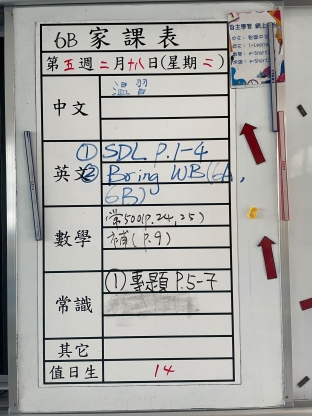 6B 家課表
第五週二月十八日(星期二)
中文
溫習
英文
① SDL P.1-4
② Bring WB(6A,
6B)
數學
常500(P.24,25)
補(P.9)
常識
(1)專題 P.5-7
其它
值日生
14
自主學習 網上